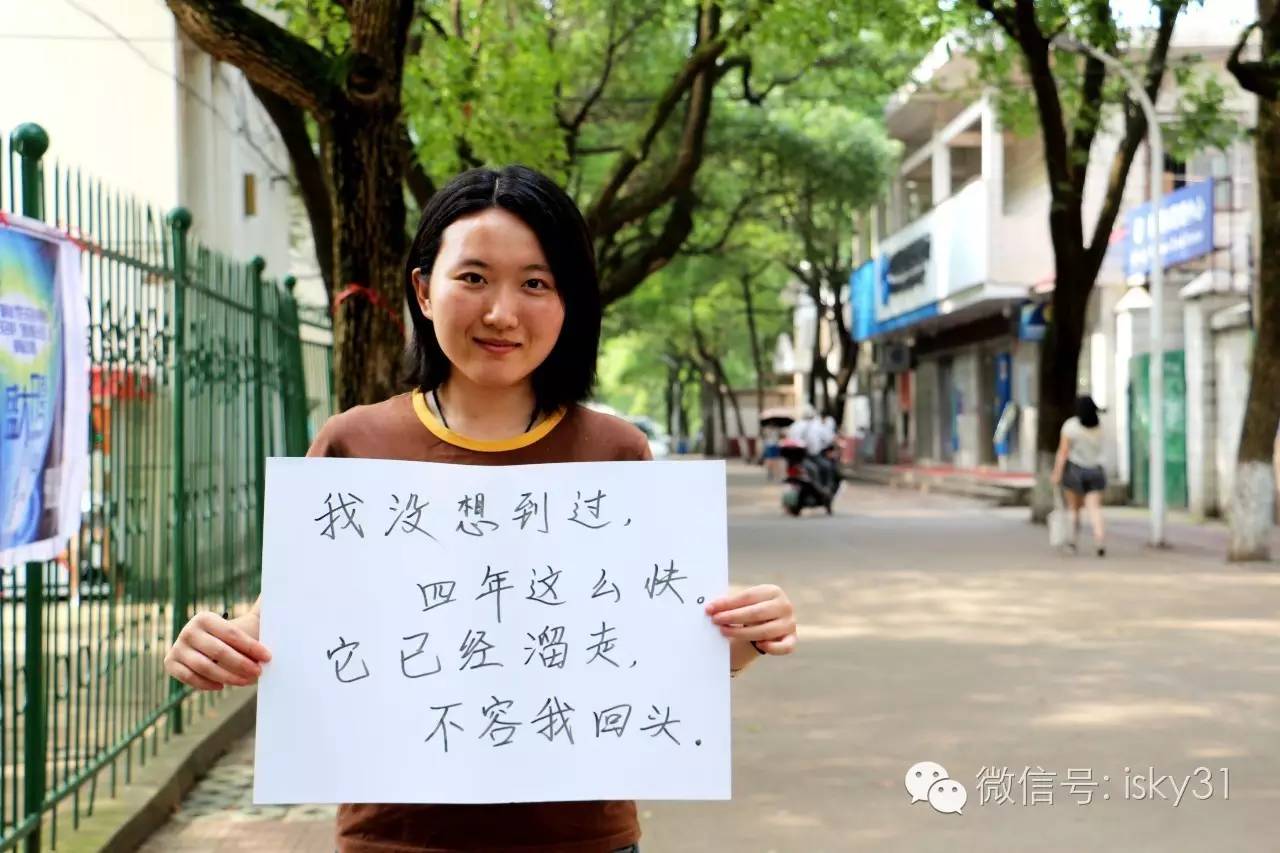 我没想到过,
四年这么快。
它已经溜走,
不容我回头.
微信号: isky31